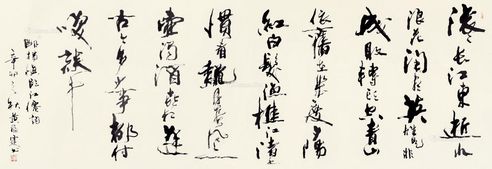 滚长江东逝水
浪花淘尽英雄是非
成败转头空青山
依旧在几度夕阳
红白发渔樵江渚上
惯看秋月春风一
壶浊酒喜相逢
古今多少事都付
笑谈中
明杨慎临江仙词